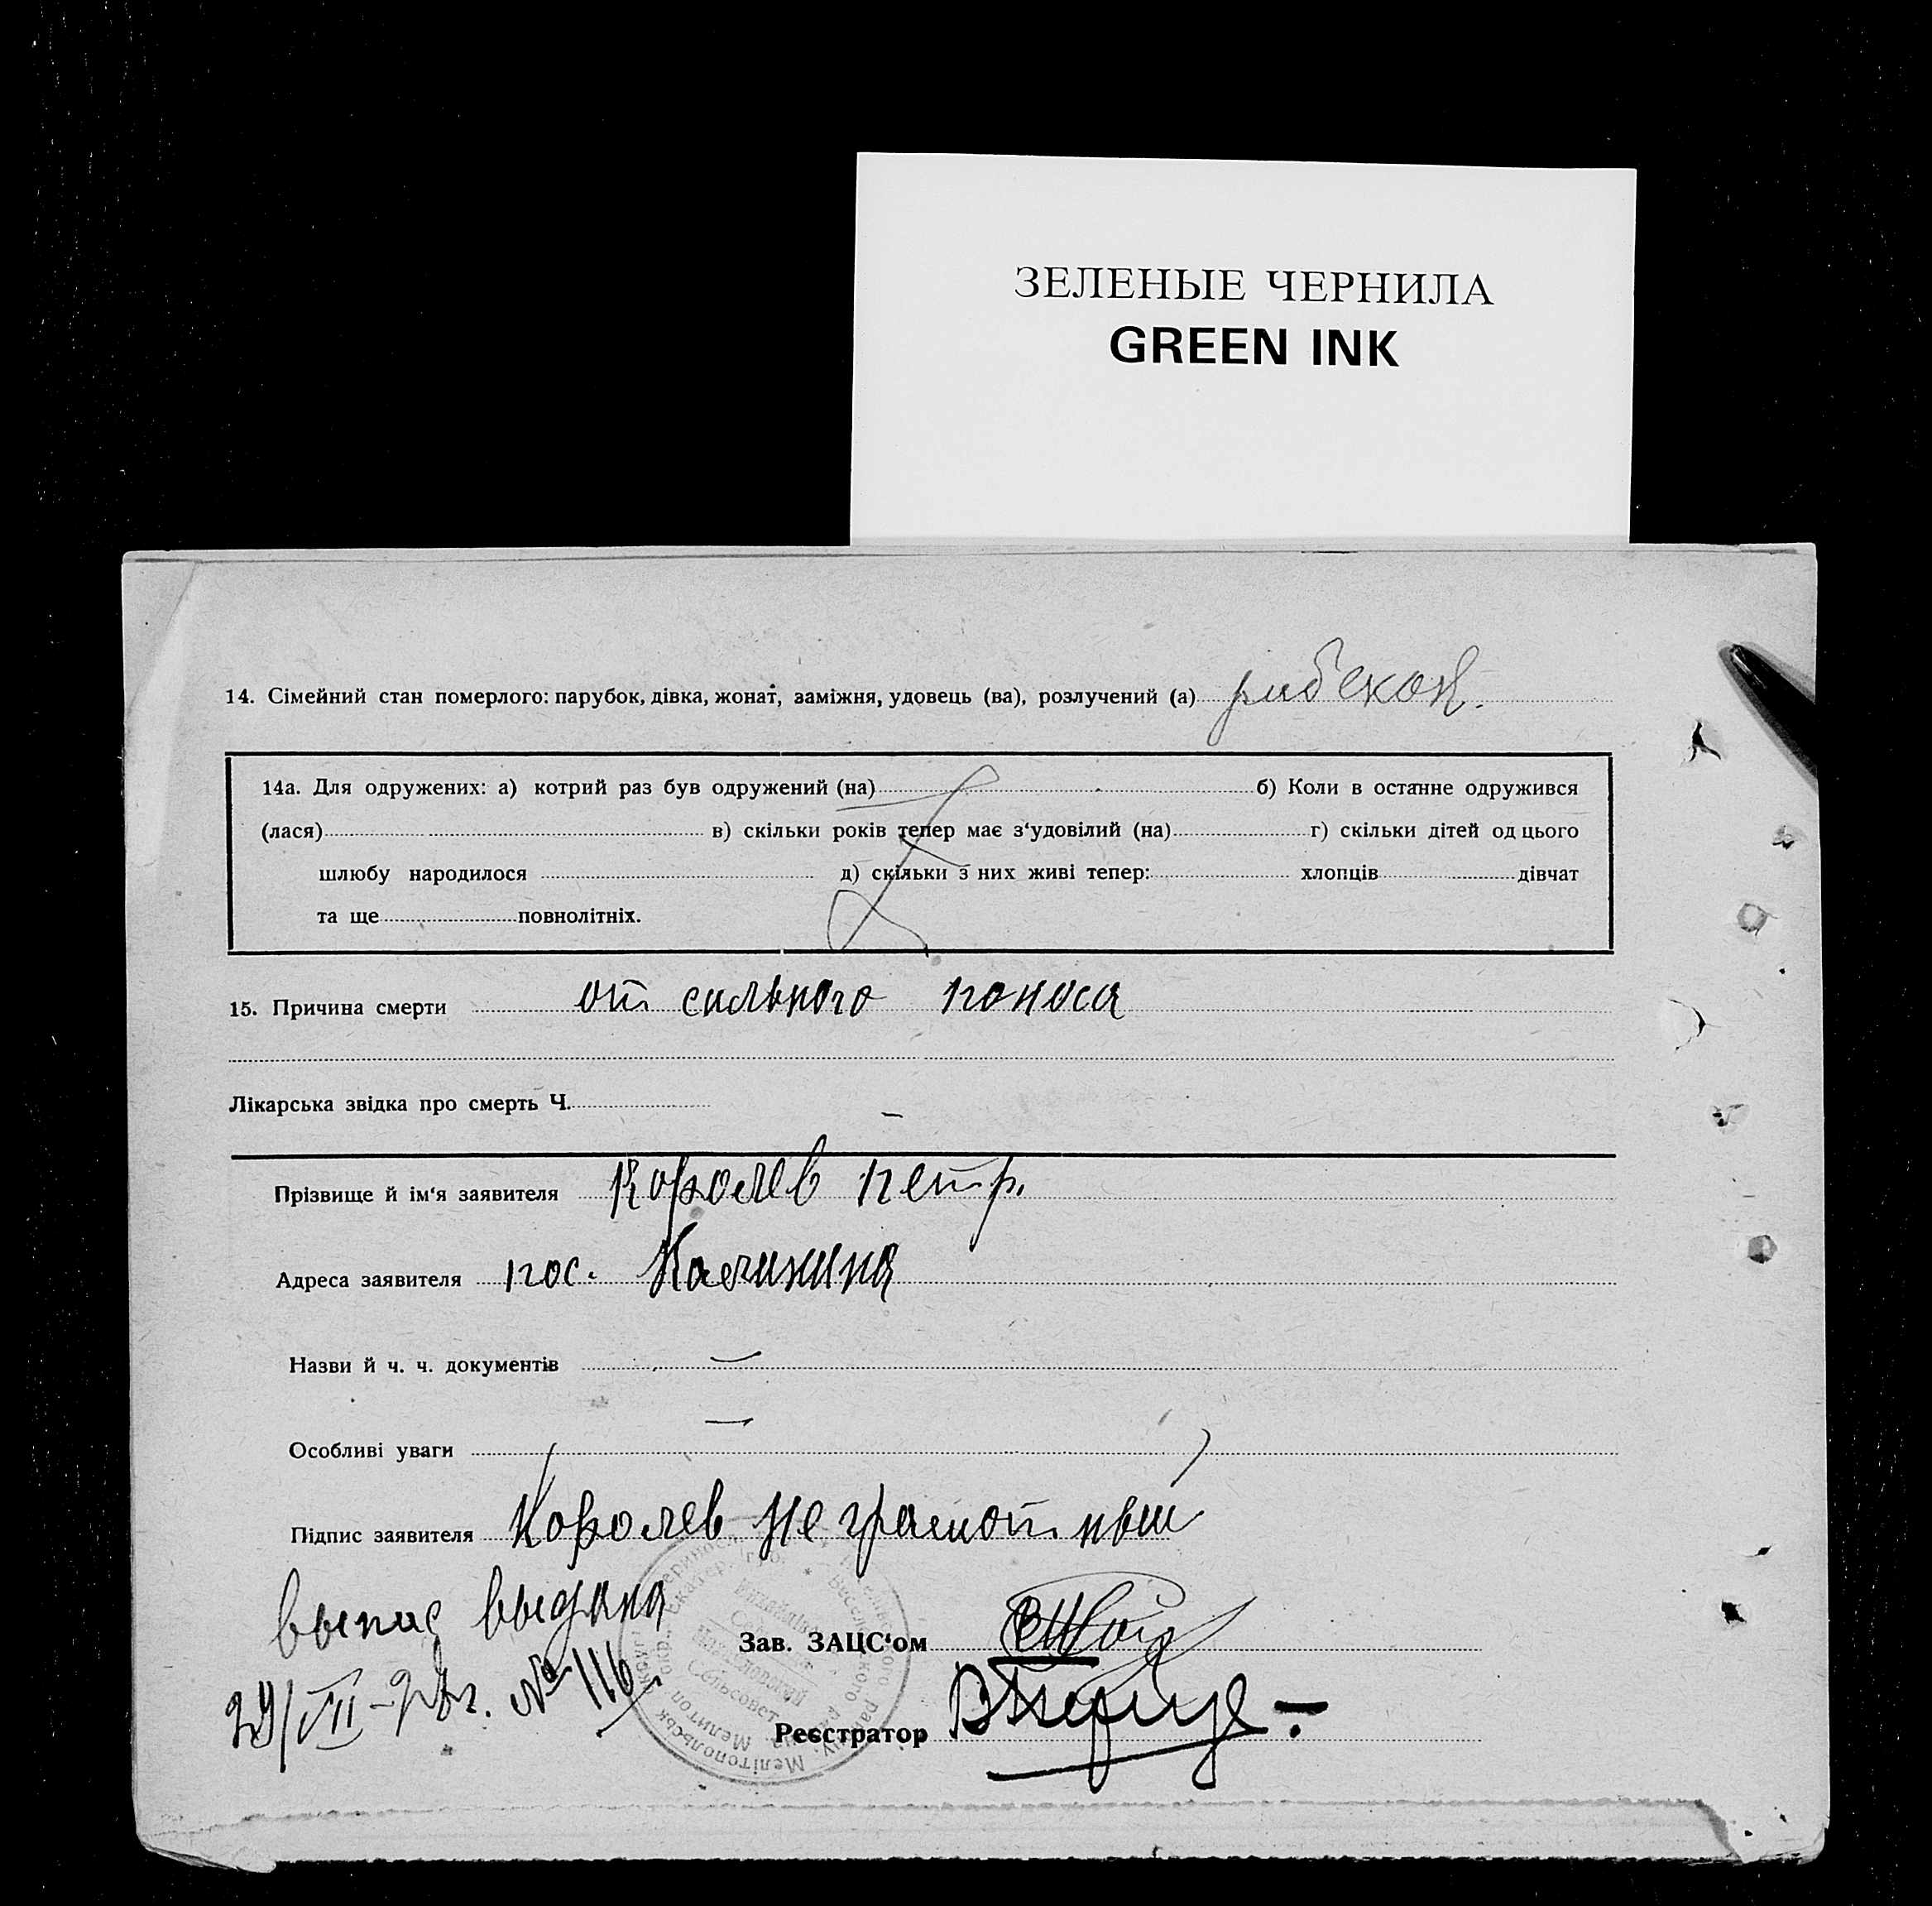 ЗЕЛЕНЫЕ ЧЕРНИЛА
GREEN INK
14. Сімейний стан померлого: парубок, дівка, жонат, заміжня, удовець (ва), розлучений (а) рибекок.
14а. Для одружених: а) котрий раз був одружений (на) б) Коли в останне одружився
(лася) в) скільки років тепер має з‘удовілий (на) г) скільки дітей од цього
шлюбу народилося д) скільки з них живі тепер: хлопців дівчат
та ще повнолітніх.
15. Причина смерти от сильного поноса
Лікарська звідка про смерть Ч. –
Прізвище й ім‘я заявителя Королев Петр.
Адреса заявителя пос. Калинина
Назви й ч. ч. документів –
Особливі уваги –
Підпис заявителя Королев не грамотный
выпис выдана
29/VII № 116
Зав. ЗАЦС‘ом
Реєстратор
Сельсовет
Мелітопольськ